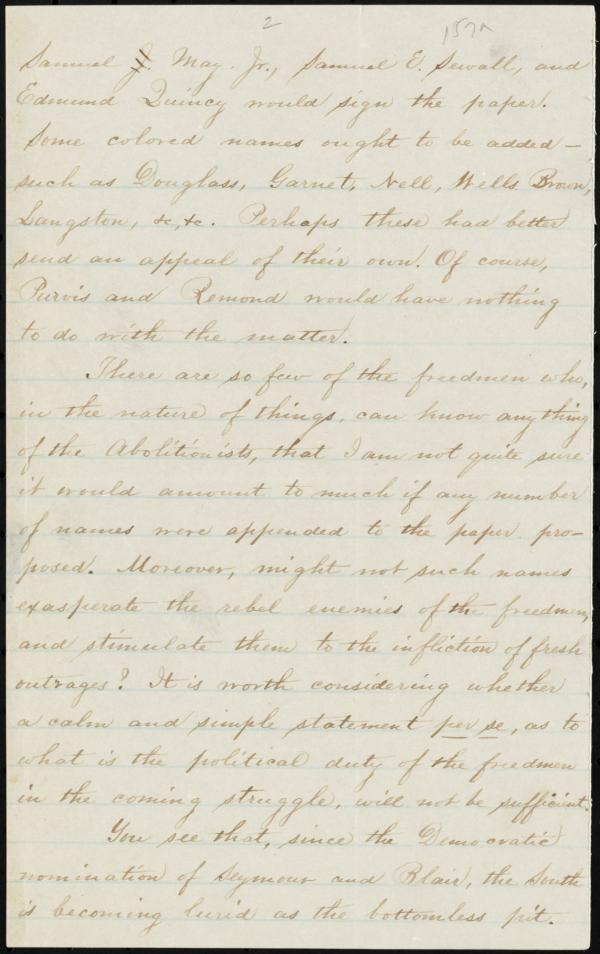 2
157A
Samuel J. May. Jr., Samuel E. Sewall, and
Edmund Quincy would sign the paper.
Some colored names ought to be added—
such as Douglass, Garnet, Nell, Wells Brown,
Langston, &c, &c. Perhaps these had better
send an appeal of their own. Of course,
Purvis and Remond would have nothing
to do with the matter.
There are so few of the freedmen who,
in the nature of things, can know any thing
of the Abolitionists, that I am not quite sure
it would amount to much if any number
of names were appended to the paper pro-
posed. Moreover, might not such names
exasperate the rebel enemies of the freedmen,
and stimulate them to the infliction of fresh
outrages? It is worth considering whether
a calm and simple statement per se, as to
what is the political duty of the freedmen
in the coming struggle, will not be sufficient.
You see that, since the Democratic
nomination of Seymour and Blair, the South
is becoming lurid as the bottomless pit.